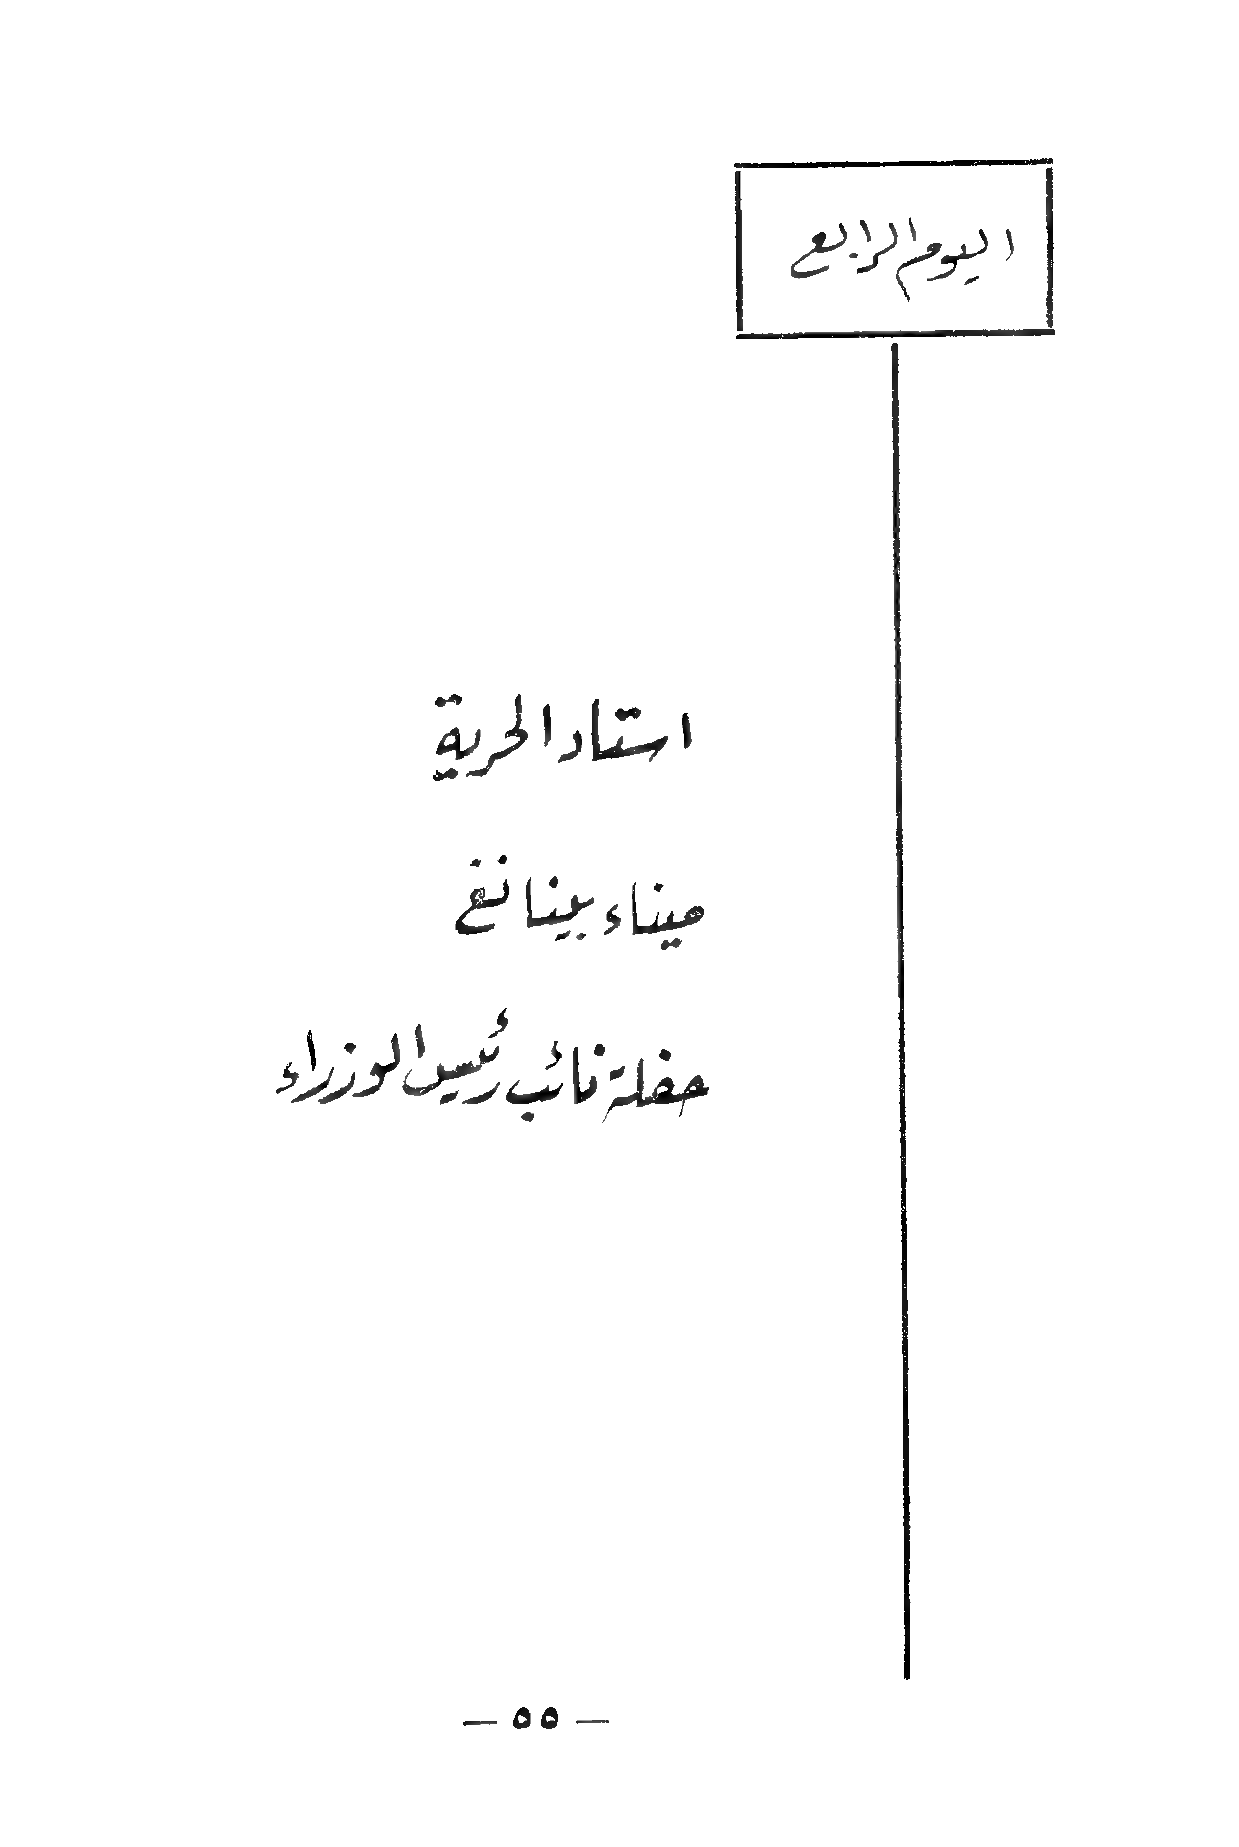 اليوم الرابع
استاد الحرية
ميناء بينانغ
حفلة نائب رئيس الوزراء
— ٥٥ —